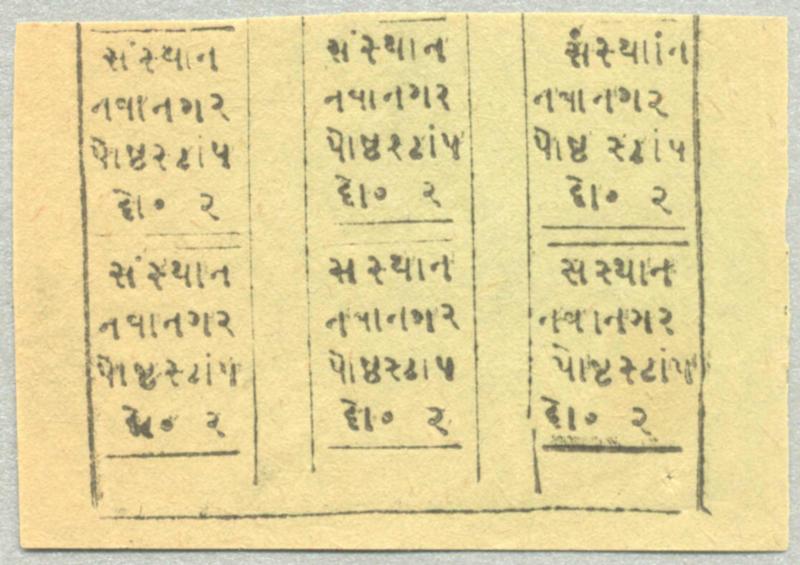 સંસ્થાન
નવાનગર
પોષ્ટસ્ટાંપ
દો૦ ૨
સંસ્થાન
નવાનગર
પોષ્ટસ્ટાંપ
દો૦ ૨
સંસ્થાંન
નવાનગર
પોષ્ટ સ્ટાંપ
દો૦ ૨
સંસ્થાન
નવાનગર
પોષ્ટસ્ટાંપ
દો૦ ૨
સ સ્થાન
નવાનગર
પોષ્ટસ્ટાપ
દો૦ ૨
સંસ્થાન
નવાનગર
પોષ્ટસ્ટાંપ
દો૦ ૨